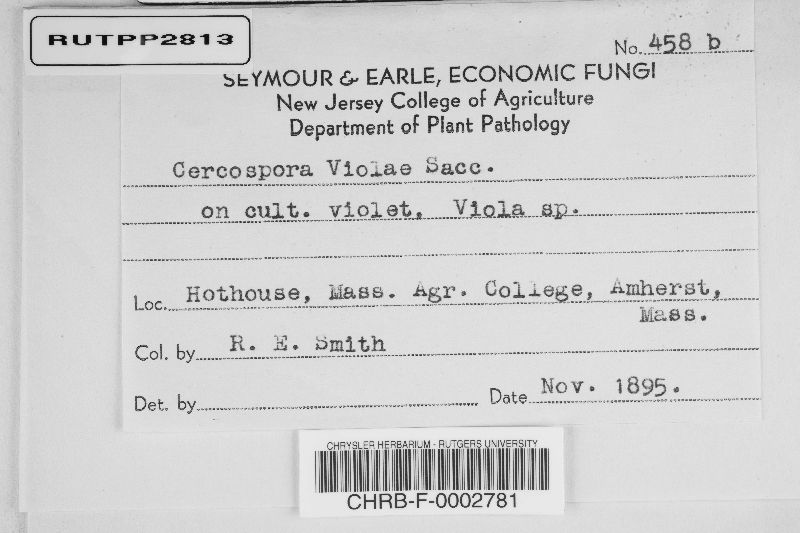 RUTPP2813
No. 458 b
SEYMOUR & EARLE, ECONOMIC FUNGI
New Jersey College of Agriculture
Department of Plant Pathology
Cercospora Violae Sacc.
on cult. violet, Viola sp.
Loc. Hothouse, Mass. Agr. College, Amherst,
Mass.
Col. by R. E. Smith
Det. by
Date Nov. 1895.
CHRYSLER HERBARIUM - RUTGERS UNIVERSITY
CHRB-F-0002781